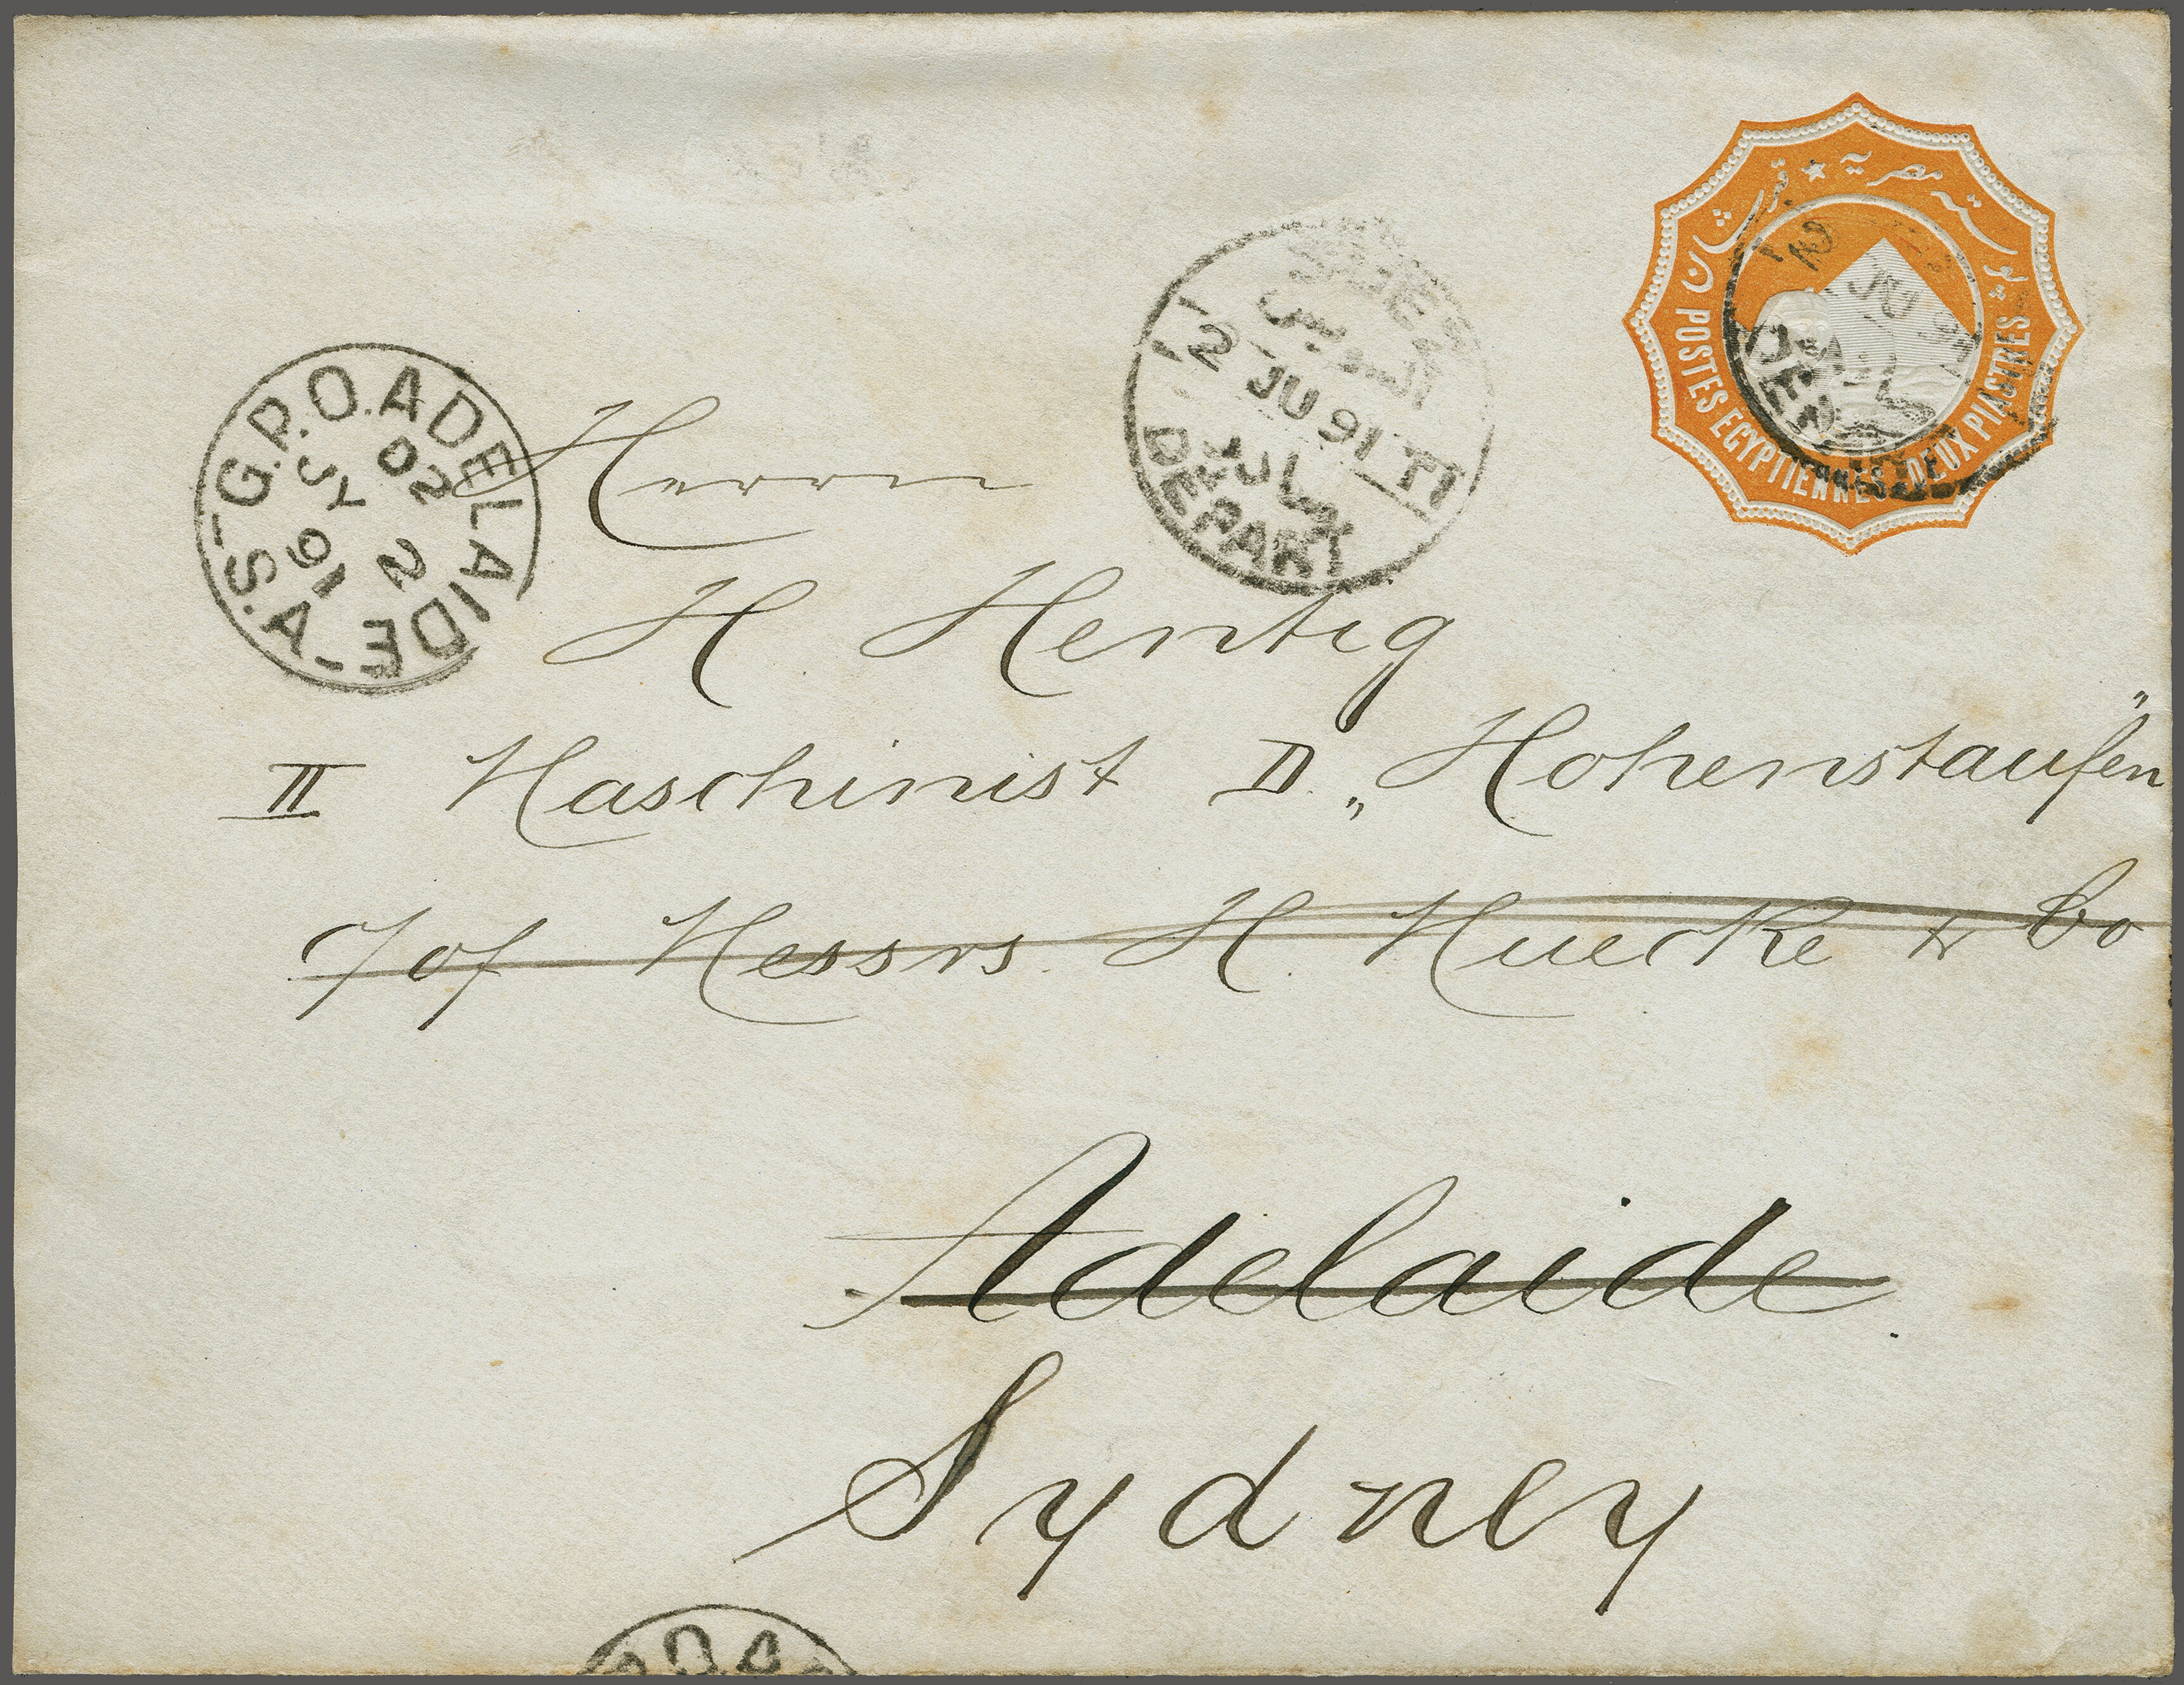 بوسته مصرية ★ قرشان
POSTES EGYPTIENNES DEUX PIASTRES
12 JU 91
SUEZ
السويس
12 JU 91 T1
DEPART
G.P.O. ADELAIDE - S.A -
D2
JY 2
91
Herrn
H Hentig
II Maschinist D. „Hohenstaufen"
c/of Messrs. H. Muecke & Co
Adelaide.
Sydney
P.O.A